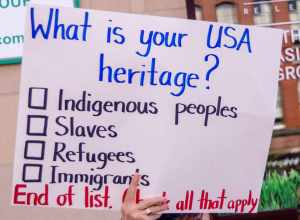 What is your USA
heritage?
☐ Indigenous peoples
☐ Slaves
☐ Refugees
☐ Immigrants
End of list. all that apply